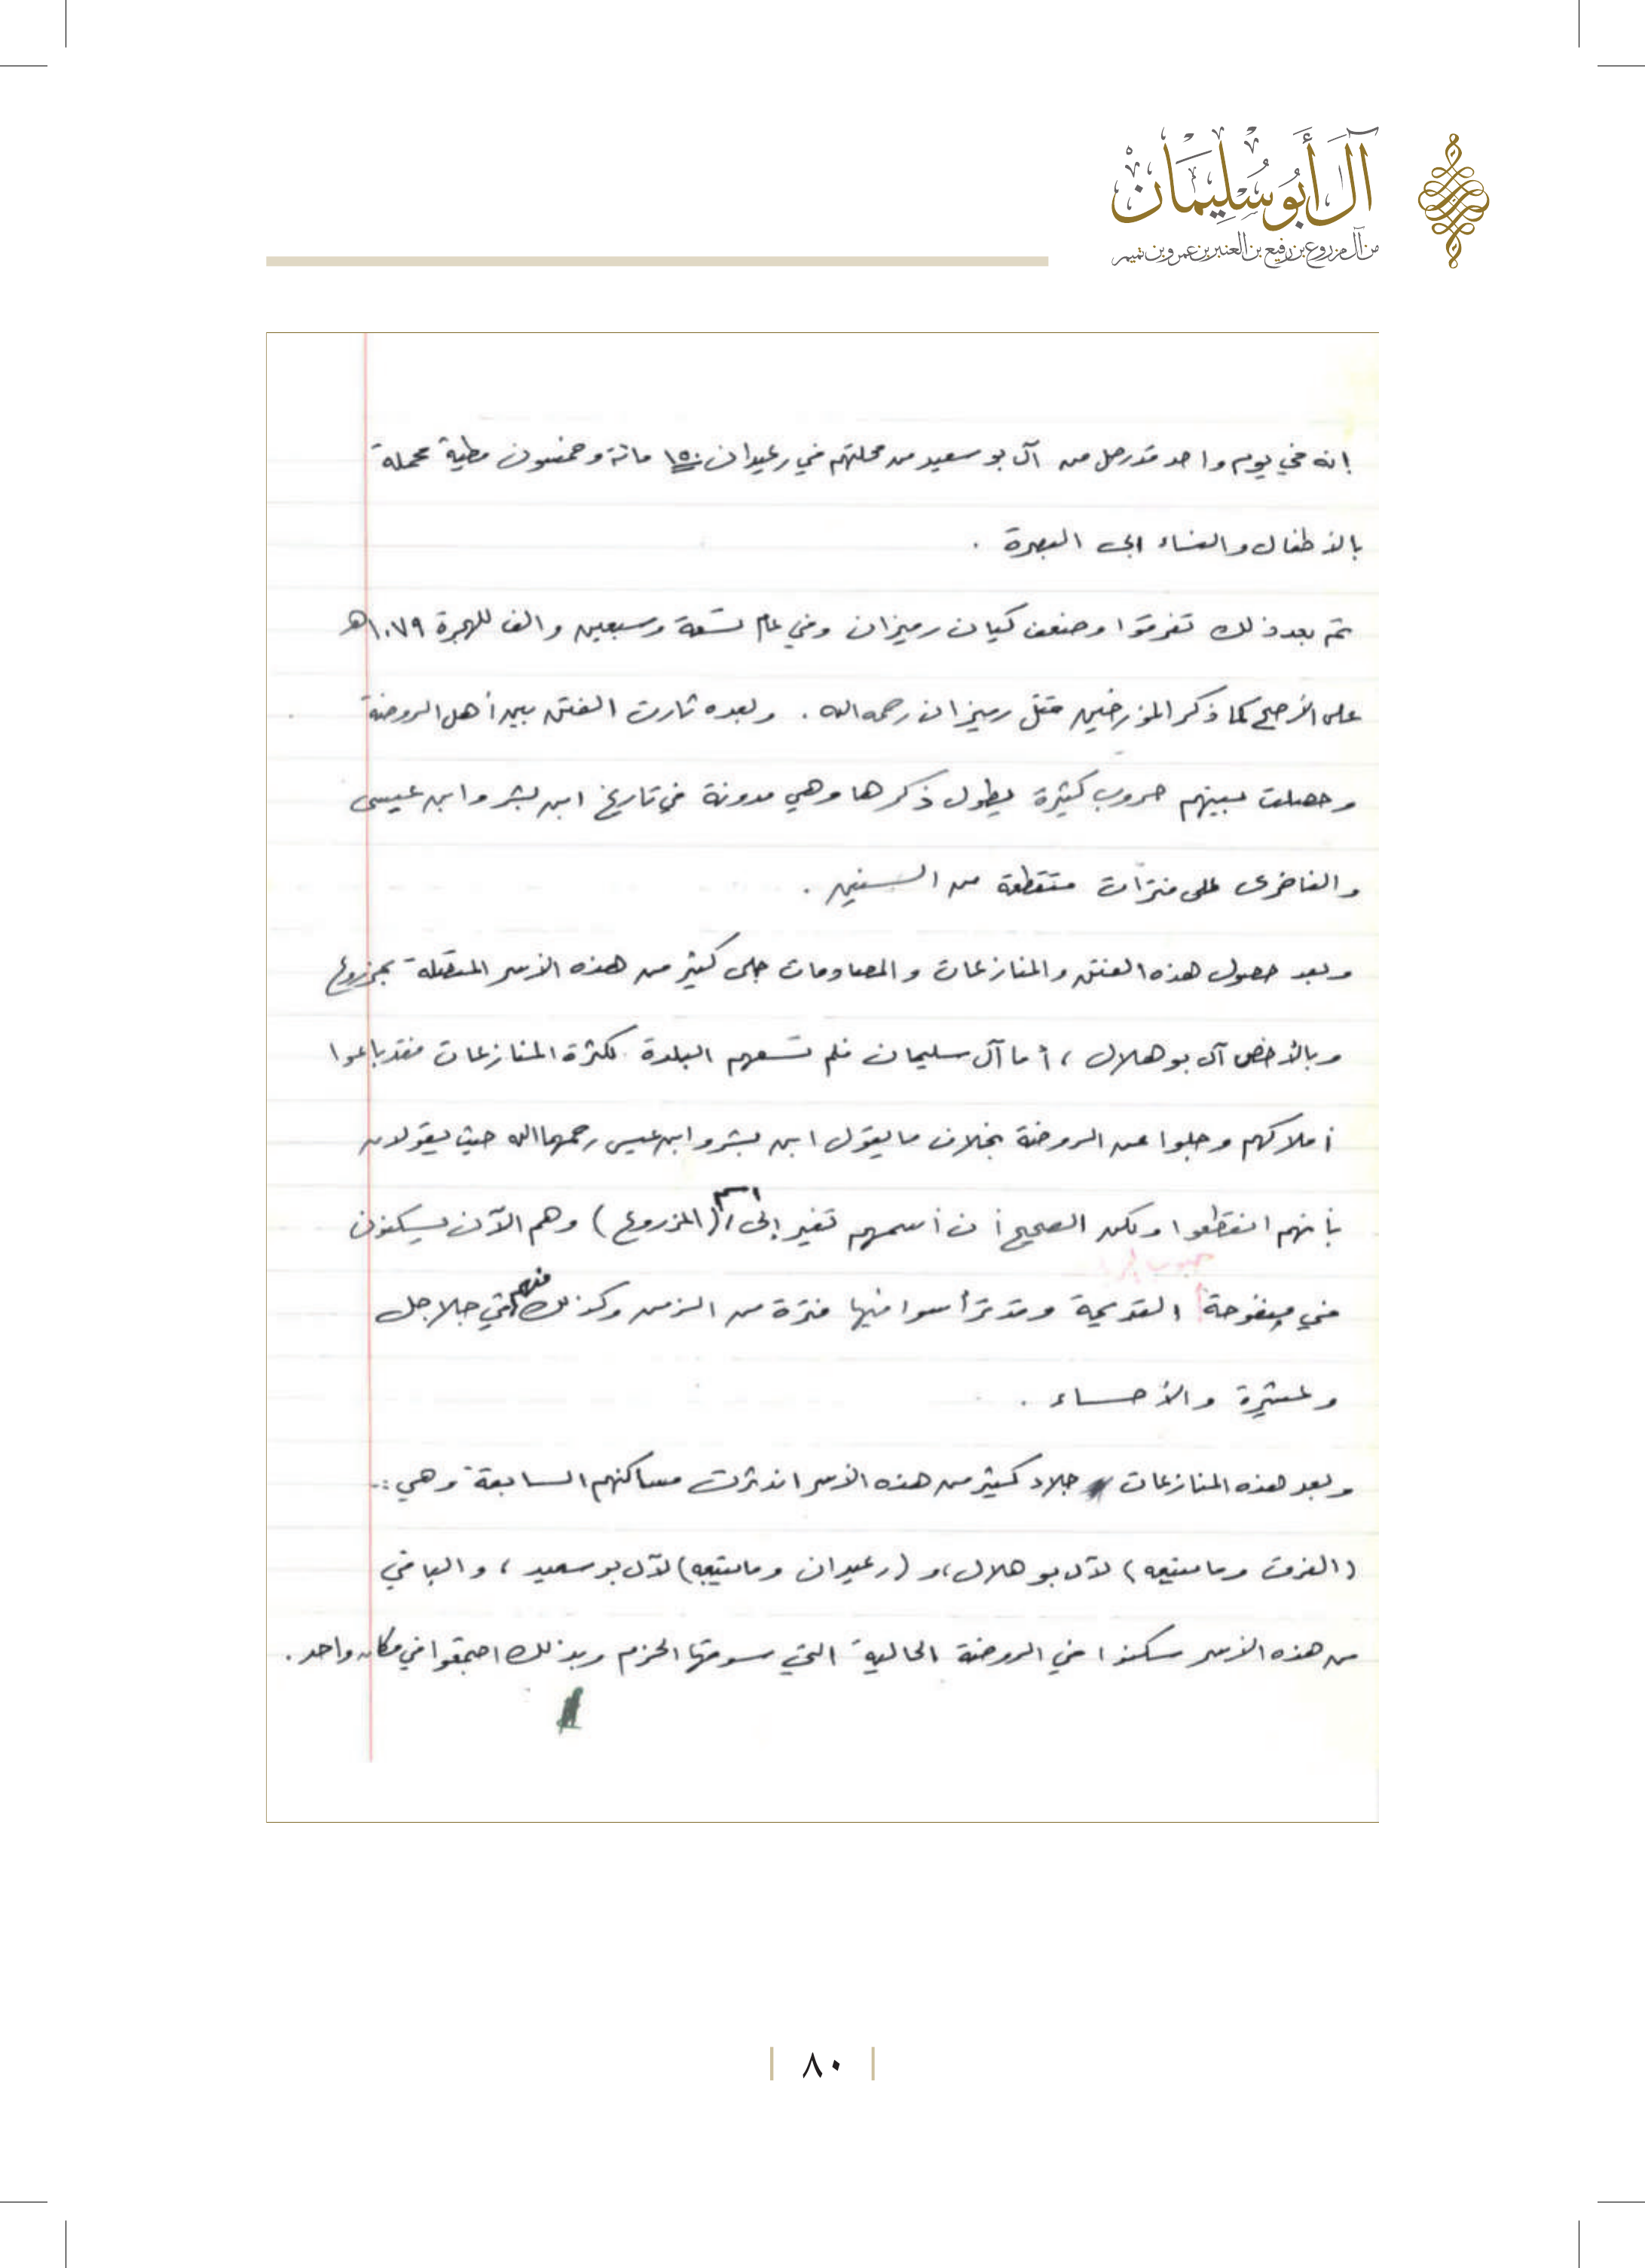 آل أَبُو سُلِيمَان
من آل مزروع بن رفيع بن العنبر بن عمرو بن تميم
إنه في يوم واحد قد رحل من آل بو سعيد من محلتهم في رغيدان ١٥٠ مائة وخمسون مطية محملة
بالأطفال والنساء إلى البصرة .
ثم بعد ذلك تفرقوا وضعف كيان رميزان وفي عام تسعة وسبعين والف للهجرة ١٠٧٩هـ
على الأرجح كما ذكر المؤرخين قتل رميزان رحمه الله . وبعده ثارت الفتن بين أهل الروضة
وحصلت بينهم حروب كثيرة يطول ذكرها وهي مدونة في تاريخ ابن بشر وابن عيسى
والفاخري على فترات متقطعة من السنين .
وبعد حصول هذه الفتن والمنازعات والمصادمات جلى كثير من هذه الأسر المتصلة بمزروع
وبالأخص آل بو هلال ، أما آل سليمان فلم تسعهم البلدة لكثرة المنازعات فقد باعوا
أملاكهم وجلوا عن الروضة بخلاف ما يقول ابن بشر وابن عيسى رحمهما الله حيث يقولان
بأنهم انقطعوا ولكن الصحيح أن أسمهم تغير إلى اسم (المزروع) وهم الآن يسكنون
في منفوحة القديمة وقد ترأسوا فيها فترة من الزمن وكذلك منهم في جلاجل
وعشيرة والأحساء .
وبعد هذه المنازعات جلاء كثير من هذه الأسر اندثرت مساكنهم السابقة وهي :-
(الفرت وماسيعه) لآل بو هلال، و (رغيدان وماسيعه) لآل بو سعيد ، والباقي
من هذه الأسر سكنوا في الروضة الحالية التي سوقها الحزم وبذلك اجتمعوا في مكان واحد .
٨٠